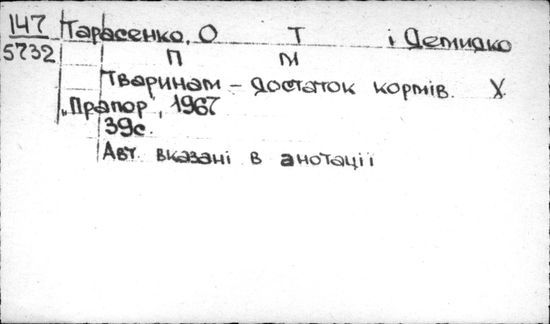 147 Тарасенко, О Т і Демидко
5732 П М
Тваринам – достаток кормів. Х.
„Прапор", 1967
39с.
Авт. вказані в анотації